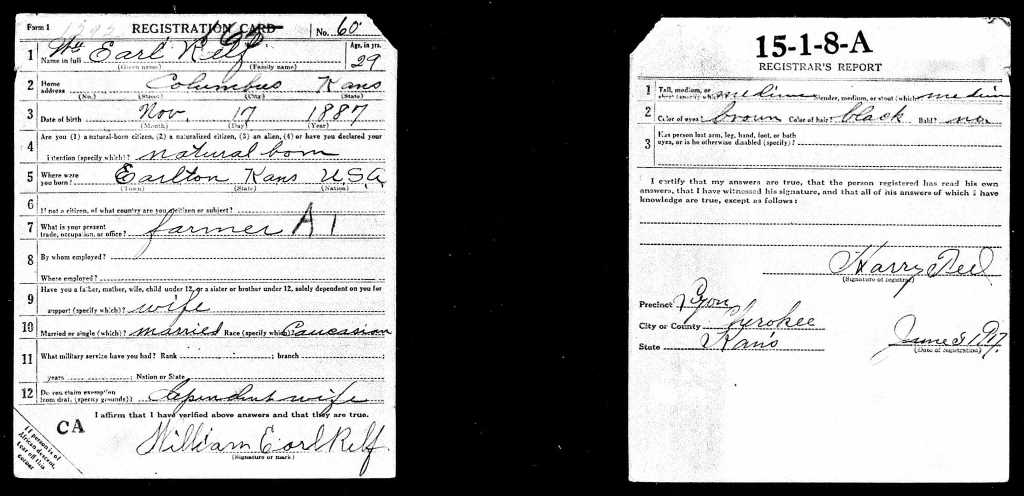 Form 1 REGISTRATION CARD No. 60
1 Name in full Wm Earl Relf Age, in yrs. 29
(Given name) (Family name)
2 Home address Columbus Kans
(No.) (Street) (City) (State)
3 Date of birth Nov. 17 1887
(Month) (Day) (Year)
4 Are you (1) a natural-born citizen, (2) a naturalized citizen, (3) an alien, (4) or have you declared your
intention (specify which)? natural born
5 Where were you born? Earlton Kans U.S.A
(Town) (State) (Nation)
6 If not a citizen, of what country are you a citizen or subject?
7 What is your present trade, occupation, or office? farmer A 1
8 By whom employed?
Where employed?
9 Have you a father, mother, wife, child under 12, or a sister or brother under 12, solely dependent on you for
support (specify which)? wife
10 Married or single (which)? married Race (specify which)? Caucasion
11 What military service have you had? Rank ; branch ;
years ; Nation or State
12 Do you claim exemption from draft (specify grounds)? dependent wife
I affirm that I have verified above answers and that they are true.
CA
William Earl Relf
(Signature or mark)
If person is of
African descent,
tear off this
corner
15-1-8-A
REGISTRAR'S REPORT
1 Tall, medium, or short (specify which)? medium Slender, medium, or stout (which)? medium
2 Color of eyes? brown Color of hair? black Bald? no
3 Has person lost arm, leg, hand, foot, or both
eyes, or is he otherwise disabled (specify)?
I certify that my answers are true, that the person registered has read his own
answers, that I have witnessed his signature, and that all of his answers of which I have
knowledge are true, except as follows:
Harry
(Signature of registrar)
Precinct Lyon
City or County Cherokee
State Kans June 5 1917
(Date of registration)